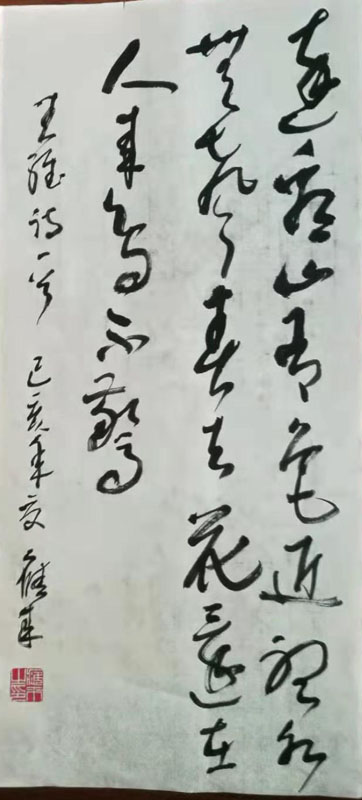 遠看山有色近聽水
無聲春去花還在
人來鳥不驚
王維詩一首 己亥年夏